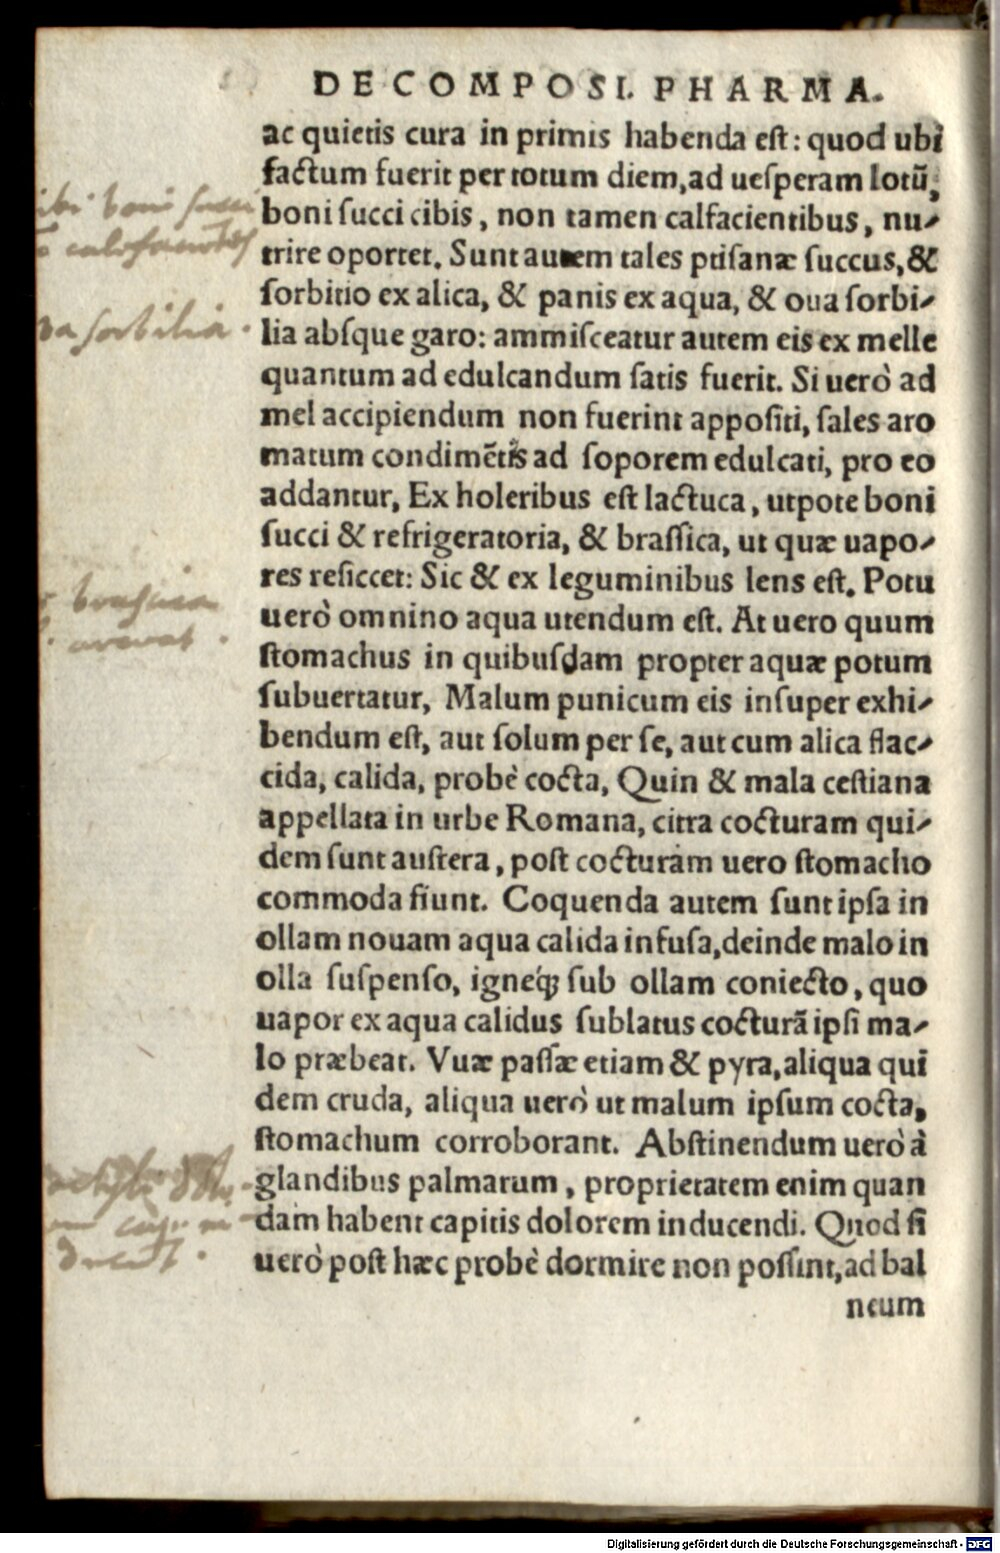 DE COMPOSI. PHARMA.
ac quietis cura in primis habenda eſt: quod ubi
factum fuerit per totum diem, ad ueſperam lotũ,
boni ſucci cibis, non tamen calfacientibus, nu-
trire oportet. Sunt autem tales ptiſanæ ſuccus, &
ſorbitio ex alica, & panis ex aqua, & oua ſorbi-
lia abſque garo: ammiſceatur autem eis ex melle
quantum ad edulcandum ſatis fuerit. Si uerò ad
mel accipiendum non fuerint appoſiti, ſales aro
matum condimẽtis ad ſoporem edulcati, pro eo
addantur, Ex holeribus eſt lactuca, utpote boni
ſucci & refrigeratoria, & braſſica, ut quæ uapo-
res reſiccet: Sic & ex leguminibus lens eſt. Potu
uerò omnino aqua utendum eſt. At uero quum
ſtomachus in quibuſdam propter aquæ potum
ſubuertatur, Malum punicum eis inſuper exhi-
bendum eſt, aut ſolum per ſe, aut cum alica flac-
cida, calida, probè cocta, Quin & mala ceſtiana
appellata in urbe Romana, citra cocturam qui-
dem ſunt auſtera, poſt cocturam uero ſtomacho
commoda fiunt. Coquenda autem ſunt ipſa in
ollam nouam aqua calida infuſa, deinde malo in
olla ſuſpenſo, igneq́; ſub ollam coniecto, quo
uapor ex aqua calidus ſublatus cocturã ipſi ma-
lo præbeat. Vuæ paſſæ etiam & pyra, aliqua qui
dem cruda, aliqua uerò ut malum ipſum cocta,
ſtomachum corroborant. Abſtinendum uerò à
glandibus palmarum, proprietatem enim quan
dam habent capitis dolorem inducendi. Quod ſi
uerò poſt hæc probè dormire non poſſint, ad bal
neum
boni ſucci
ſorbilia
Digitalisierung gefördert durch die Deutsche Forschungsgemeinschaft - DFG